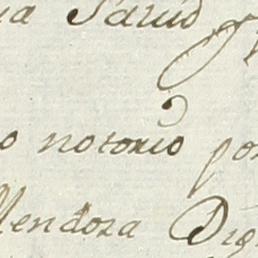 ua Salud
o notorio por
Mendoza Dig